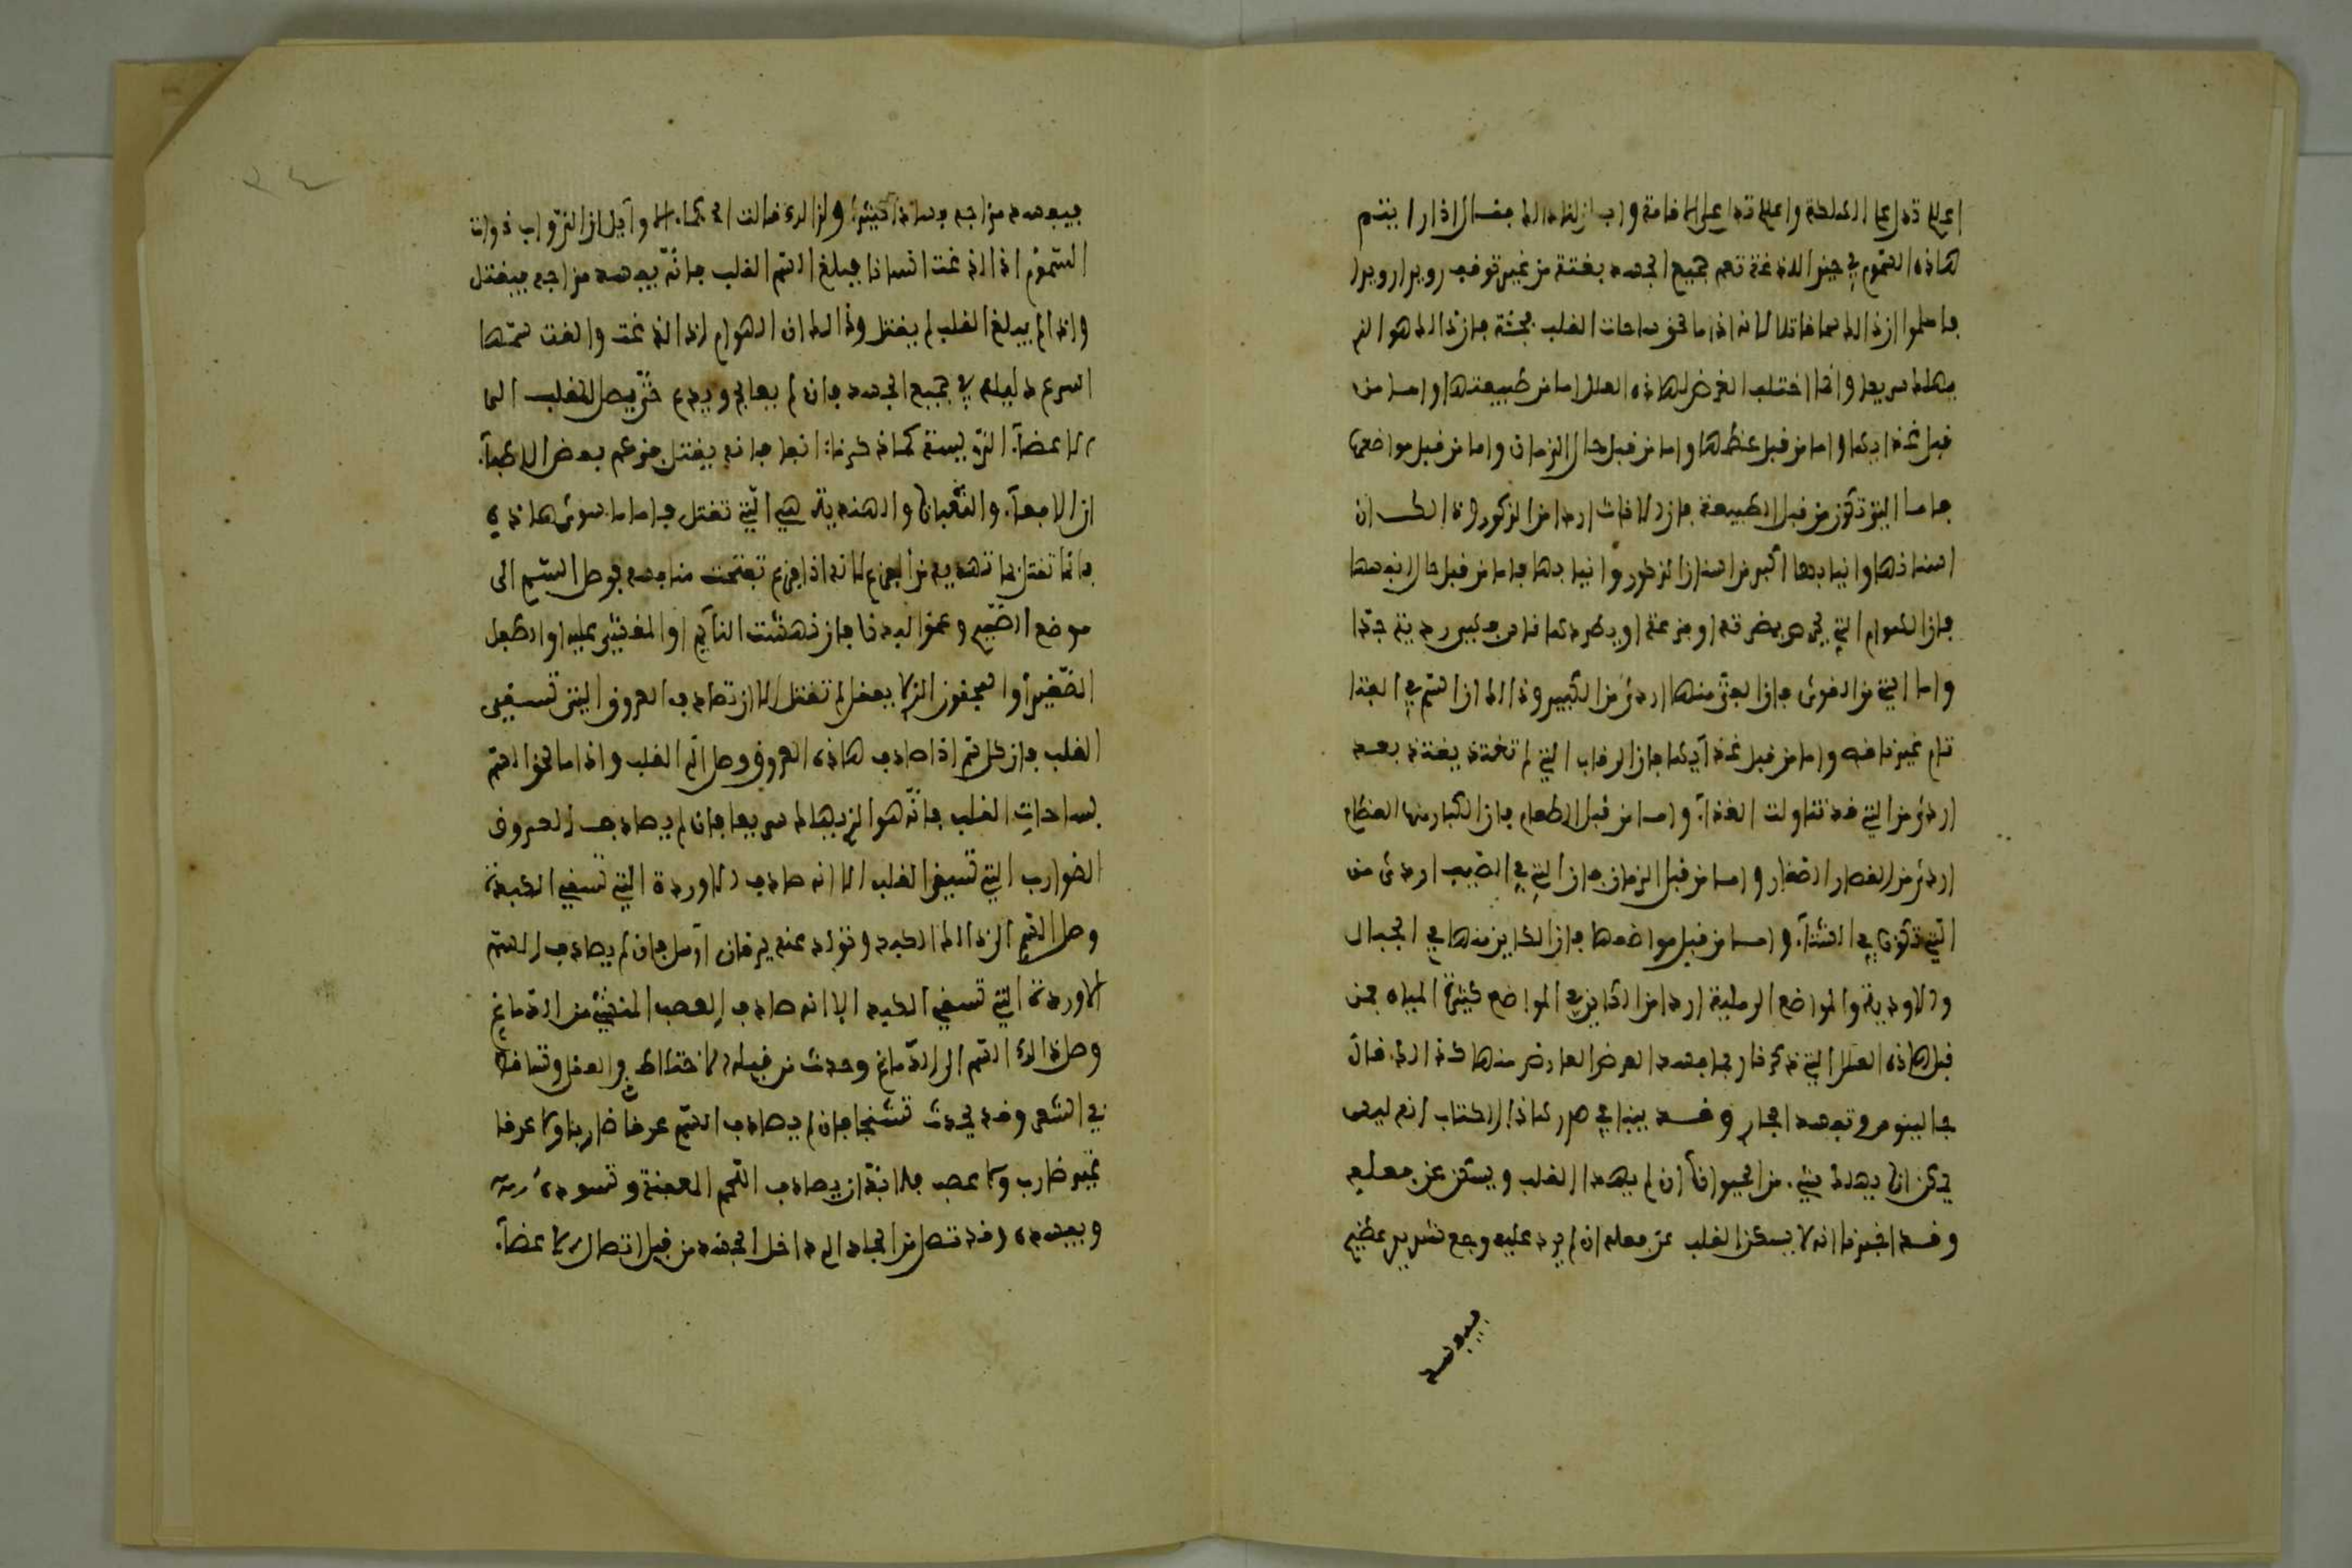 هاذه السموم في حين اللدغة تعم جميع الجسد بغتة من غير توقف رويدا رويدا
فاعلموا ان ذالك سما قاتلا لانه اذا ما لحق ساحات القلب بجثة فان ذالك هو الذي
يهلك سريعا وانما اختلف العرض لهاذه العلل اما من طبيعتها واما من
قبل غذايها واما من قبل عظمها واما من قبل حال الزمان واما من قبل مواضعها
فاما التي تكون من قبل الطبيعة فان الاناث اردا من الذكور وذالك ان
اسنانها وانيابها اكبر من اسنان الذكور وانيابها فاما من قبل حال انفسها
فان الهوام التي يجري بضرقه او فزعة او يطردها فهي ردية جدا
واما التي من القوى فان الفتى منها اردى من الكبير وذالك ان السم في الفتا
تام غير ناقص واما من قبل غذايها فان الرقاب التي لم تغتذ بعد
اردى من التي قد تناولت الغذآء واما من قبل الطعام فان الكبار منها العظام
اردى من القصار الصغار واما من قبل الزمان فان التي في الصيف اردى من
التي تكون في الشتآء واما من قبل مواضعها فان الكاين منها في الجبال
والاودية والمواضع الرملية اردا من الكاين في المواضع كثيرة المياه فمن
قبل هاذه العلل التي ذكرنا ربما فسد العرض العارض منها كذالك قال
جالينوس وتفسد المجاري وقد بينا في صدر كتاذا الكتاب انه ليس
يمكن ان يهلك شيء من الحيوان ان لم يهدا القلب ويسكن عن فعله
وقد اخبرنا انه لا يسكن القلب عن فعله ان لم يرد عليه وجع شديد عظيم
فيفسد
فيفسد مزاجه فسادا كثيرا ولذالك قالت الحكماء الاوايل ان الدواب ذوات
السموم اذا لدغت انسانا فبلغ السم القلب فانه يفسد مزاجه فيقتل
واذا لم يبلغ القلب لم يقتل وذالك ان الهوام اذا لدغت والقت سمها
اسرع دليله في جميع الجسد فان لم يعالج ويدع حتى يصل للقلب الى
الاعضآء الرييسة كما ذكرنا انفا فانه يقتل فزعم بعض الاطبآء
ان الافعآء والثعبان والهندية هي التي تقتل فاما ما سوى هاذه
فانما تقتل بما تهديه من الفزع لانه اذا فزع تفتحت منافسه فوصل السم الى
موضع الضيم وعمق البدن فان نهشت النايم او المغشى عليه او الطفل
الصغير او المجنون الذي لا يعقل لم تقتل الا ان تصادف العروق التي تسقي
القلب فان كل سم اذا صادف هاذه العروق وصل الى القلب واذا ما لحق السم
بساحات القلب فانه هو الذي يهلك سريعا فان لم يصادف العروق
الضوارب التي تسقي القلب الا انه صادف الاوردة التي تسقي الكبد
وصل السم الى ذالك الكبد وتولد عنه يرقان او سل فان لم يصادف السم
الاوردة التي تسقي الكبد الا انه صادف العصب المنبث من الدماغ
وصل ذالك السم الى الدماغ وحدث من قبله الاختلاط في العقل وتساقط
في الشعر وقد يحدث تشنجا فان لم يصادف السم عرقا ضاربا ولا عرقا
غير ضارب ولا عصب فلا بد ان يصادف اللحم المعفنة وتسوده
ويفسده وقد تصل من الجلد الى داخل الجسد من قبل اتصال الاعضآء